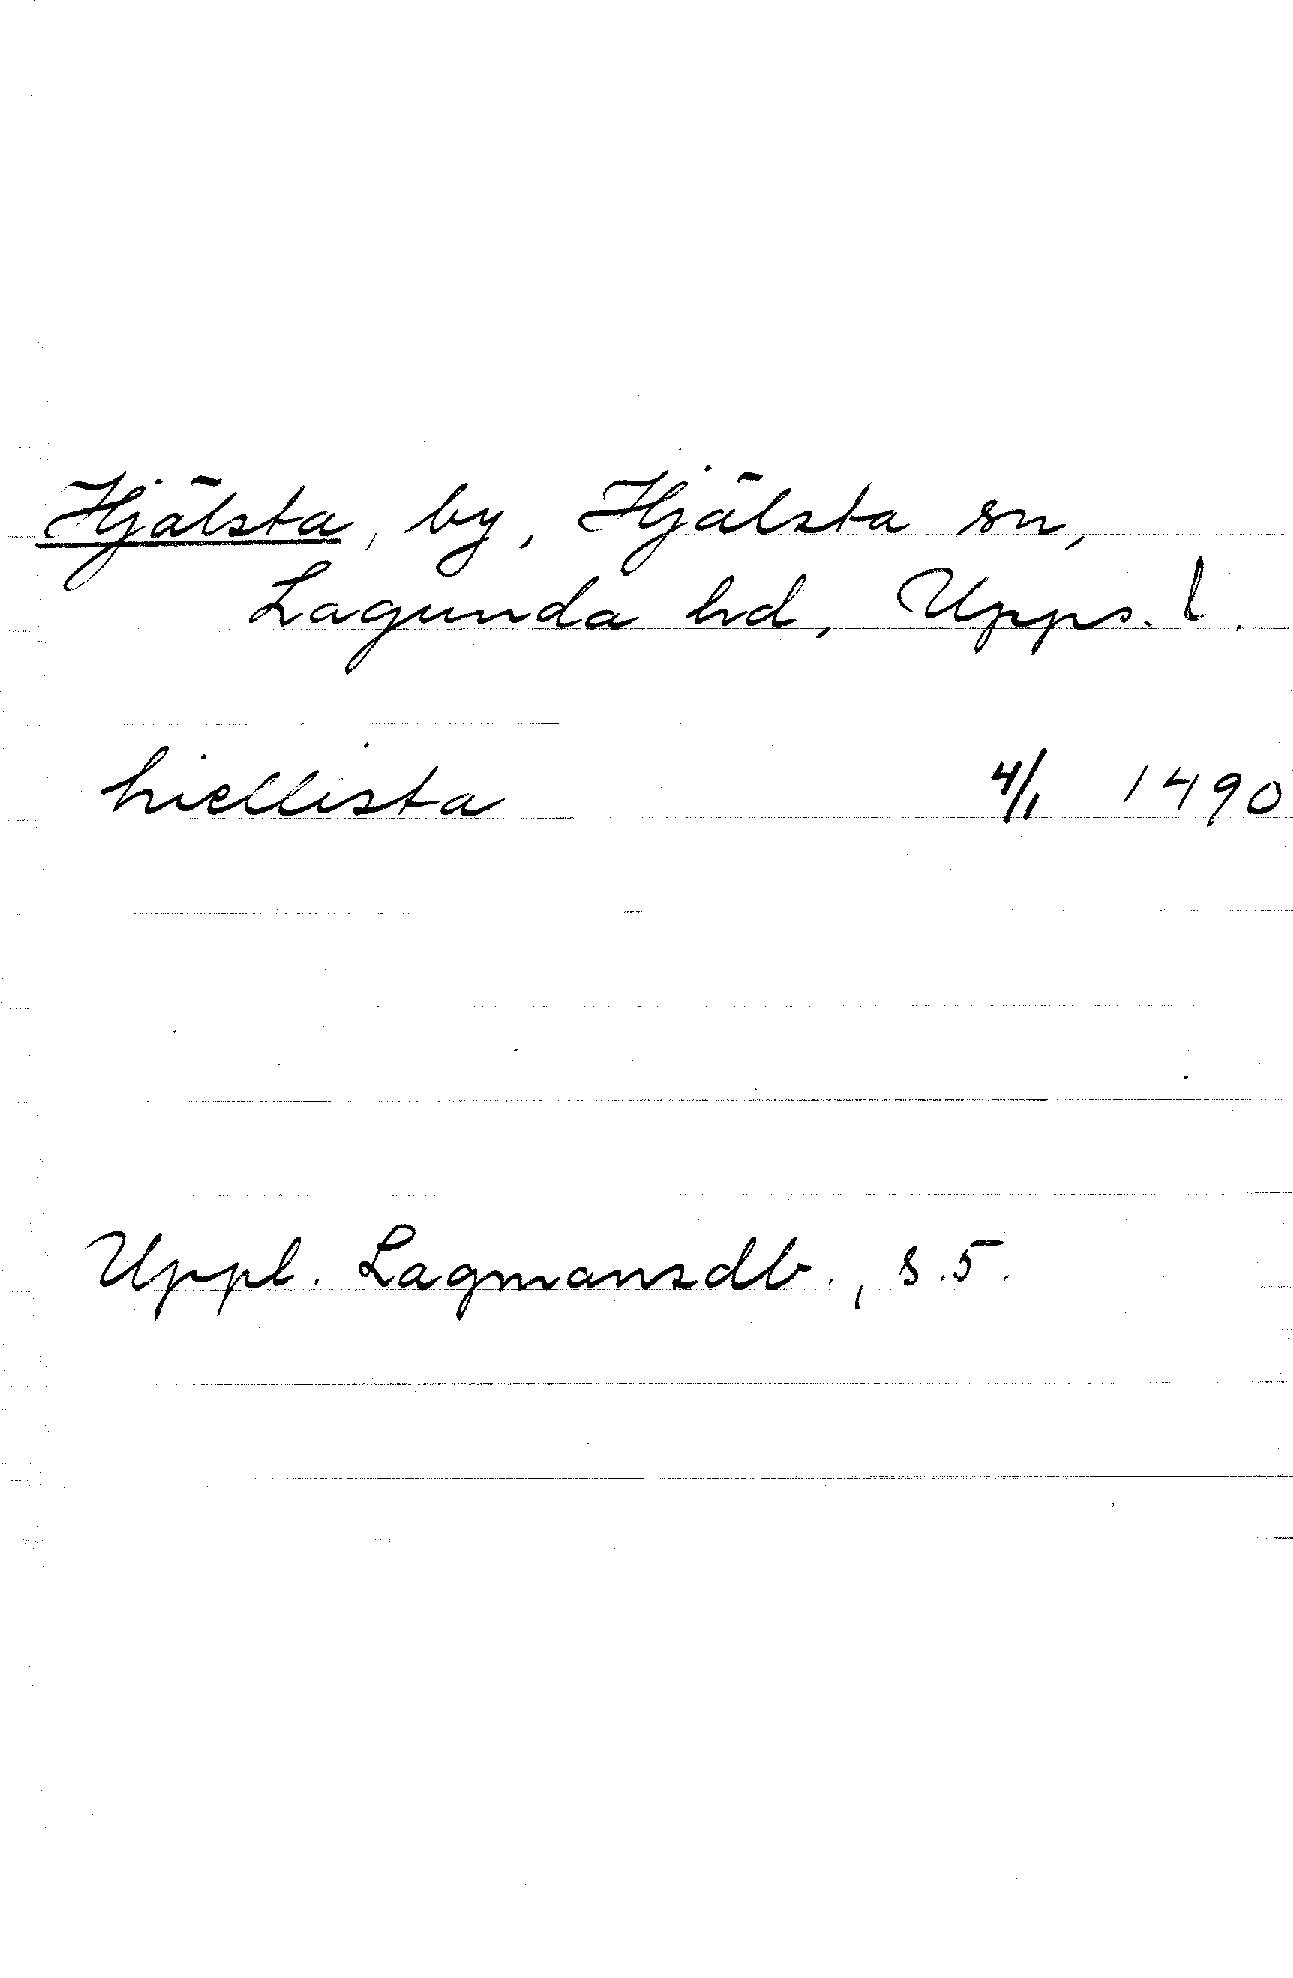 Hjälsta, by, Hjälsta sn,
Lagunda hd, Upps. l.
hiellista 4/1 1490
Uppl. Lagmansdb., s.5.